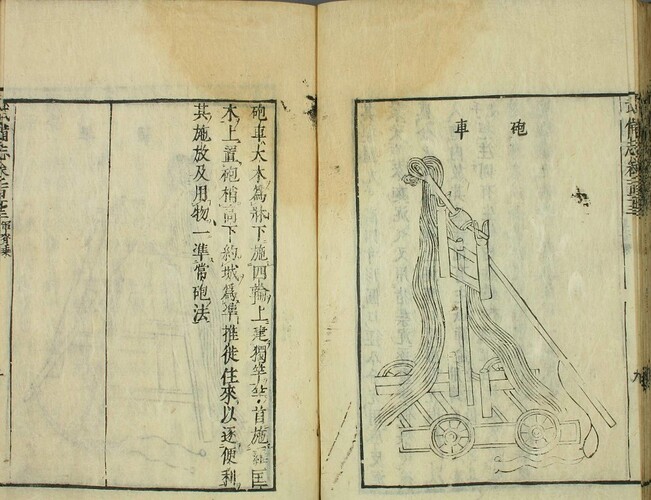 備志卷
九
砲車
砲車大木為牀下施四輪上建獨竿竿首施羅匡
木上置砲梢高下約城為準推徙往來以逐便利
其施放及用物一準常砲法
備志卷